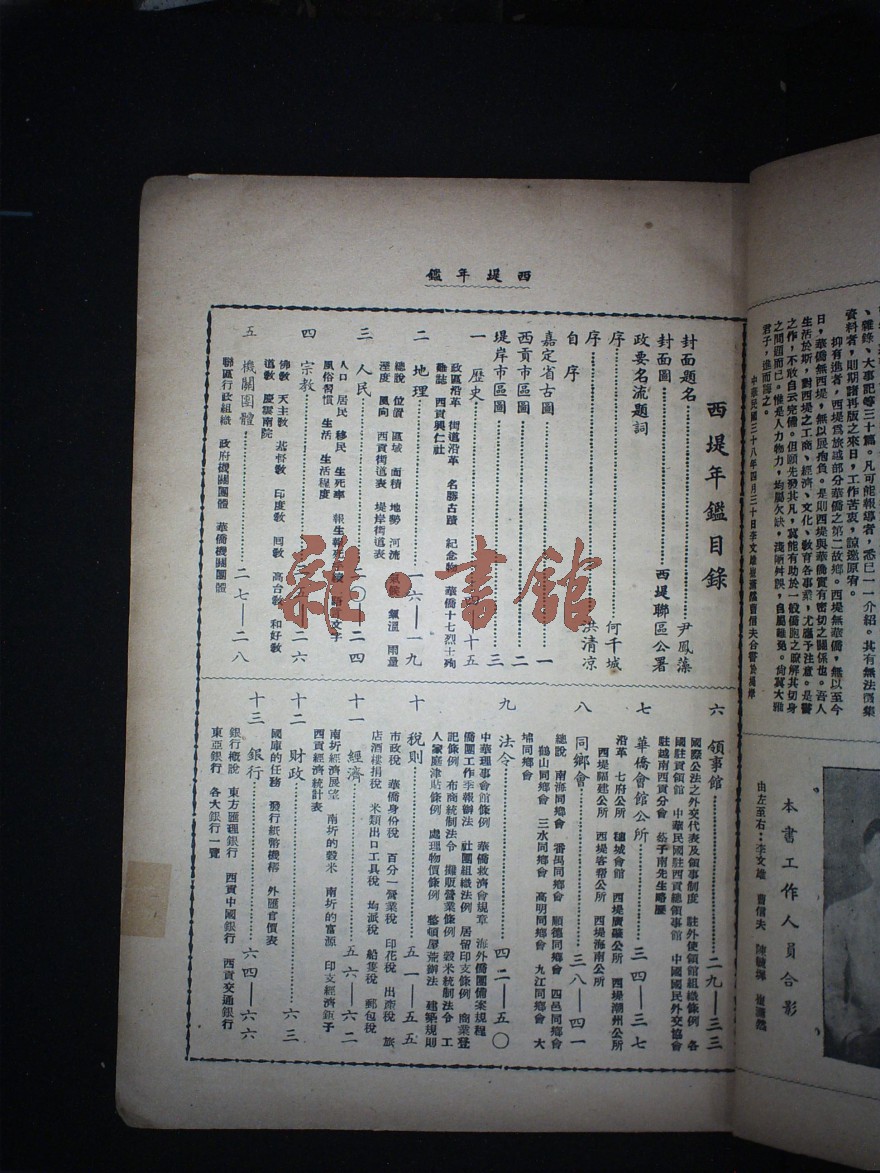 西堤年鑑
西堤年鑑目錄
封面題名……尹鳳藻
封面圖……西堤聯區公署
政要名流題詞
序……何千城
序……洪清凉
自序
嘉定省古圖……一
西貢市區圖……二
堤岸市區圖……三
一 歷史……四—十五
政區沿革 街道沿革 名勝古蹟 紀念物 華僑十七烈士殉
難誌 西貢興仁社
二 地理……一六—一九
總說 位置 區域 面積 地勢 河流 氣候 氣溫 雨量
溼度 風向 西貢街道表 堤岸街道表
三 人民……二〇—二四
人口 居民 移民 生死率 報生報死手續 語言文字
風俗習慣 生活 生活程度
四 宗教……二五—二六
佛教 天主教 基督教 印度教 回教 高台教 和好教
道教 慶雲南院
五 機關團體……二七—二八
聯區行政組織 政府機關團體 華僑機關團體
六 領事館……二九—三三
國際公法之外交代表及領事制度 駐外使領館組織條例 各
國駐貢領館 中華民國駐西貢總領事館 中國國民外交協會
駐越南西貢分會 丝子南先生略歷
七 華僑會館公所……三四—三七
沿革 七府公所 穗城會館 西堤廣肇公所 西堤潮州公所
西堤福建公所 西堤客幫公所 西堤海南公所
八 同鄉會……三八—四一
總說 南海同鄉會 番禺同鄉會 順德同鄉會 四邑同鄉會
鶴山同鄉會 三水同鄉會 高明同鄉會 九江同鄉會 大
埔同鄉會
九 法令……四二—五〇
中華理事會館條例 華僑救濟會規章 海外僑團備案規程
僑團工作季報辦法 社團組織法例 居留印支條例 商業登
記條例 布商統制法令 攤販營業條例 穀米統制法令 工
人家庭津貼條例 處理物價條例 整頓屋荒辦法 建築規則
十 稅則……五一—五五
市政稅 華僑身份稅 百分一營業稅 印花稅 出產稅 旅
店酒樓捐稅 米類出口工具稅 均派稅 船隻稅 郵包稅
十一 經濟……五六—六二
南圻經濟展望 南圻的穀米 南圻的富源 印支經濟鉅子
西貢經濟統計表
十二 財政……六三
國庫的任務 發行紙幣機構 外匯官價表
十三 銀行……六四—六六
銀行概說 東方匯理銀行 西貢中國銀行 西貢交通銀行
東亞銀行 各大銀行一覽
雜·書館
、雜錄、大事記等三十篇。凡可能報導者，悉已一一介紹。其有無法蒐集
資料者，則期諸再版之來日，工作苦衷，諒邀原宥。
抑有進者，西堤爲旅越部分華僑之第二故鄉。西堤無華僑，無以至今
日，華僑無西堤，無以展抱負。是則西堤與華僑實有密切之關係也。吾人
生活於斯，對西堤之工商、經濟、文化、教育各事業，尤應予注意。是書
之作，不敢自云完備。但願先發其凡，冀能有助於一般僑胞之瞭解其切身
之問題而已。惟是人力物力，均屬欠缺，淺陋舛誤，自屬難免。尚冀大雅
君子，進而誨之。
中華民國三十八年四月三十日李文雄 曹信夫合書於堤岸
本書工作人員合影
由左至右：李文雄 曹信夫 陳